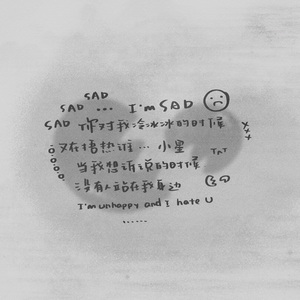 SAD
SAD ... I'm SAD
SAD 你对我冷冰冰的时候
又在捂热谁... 小星
TAT
当我想诉说的时候
没有人站在我身边
I'm unhappy and I hate U
......